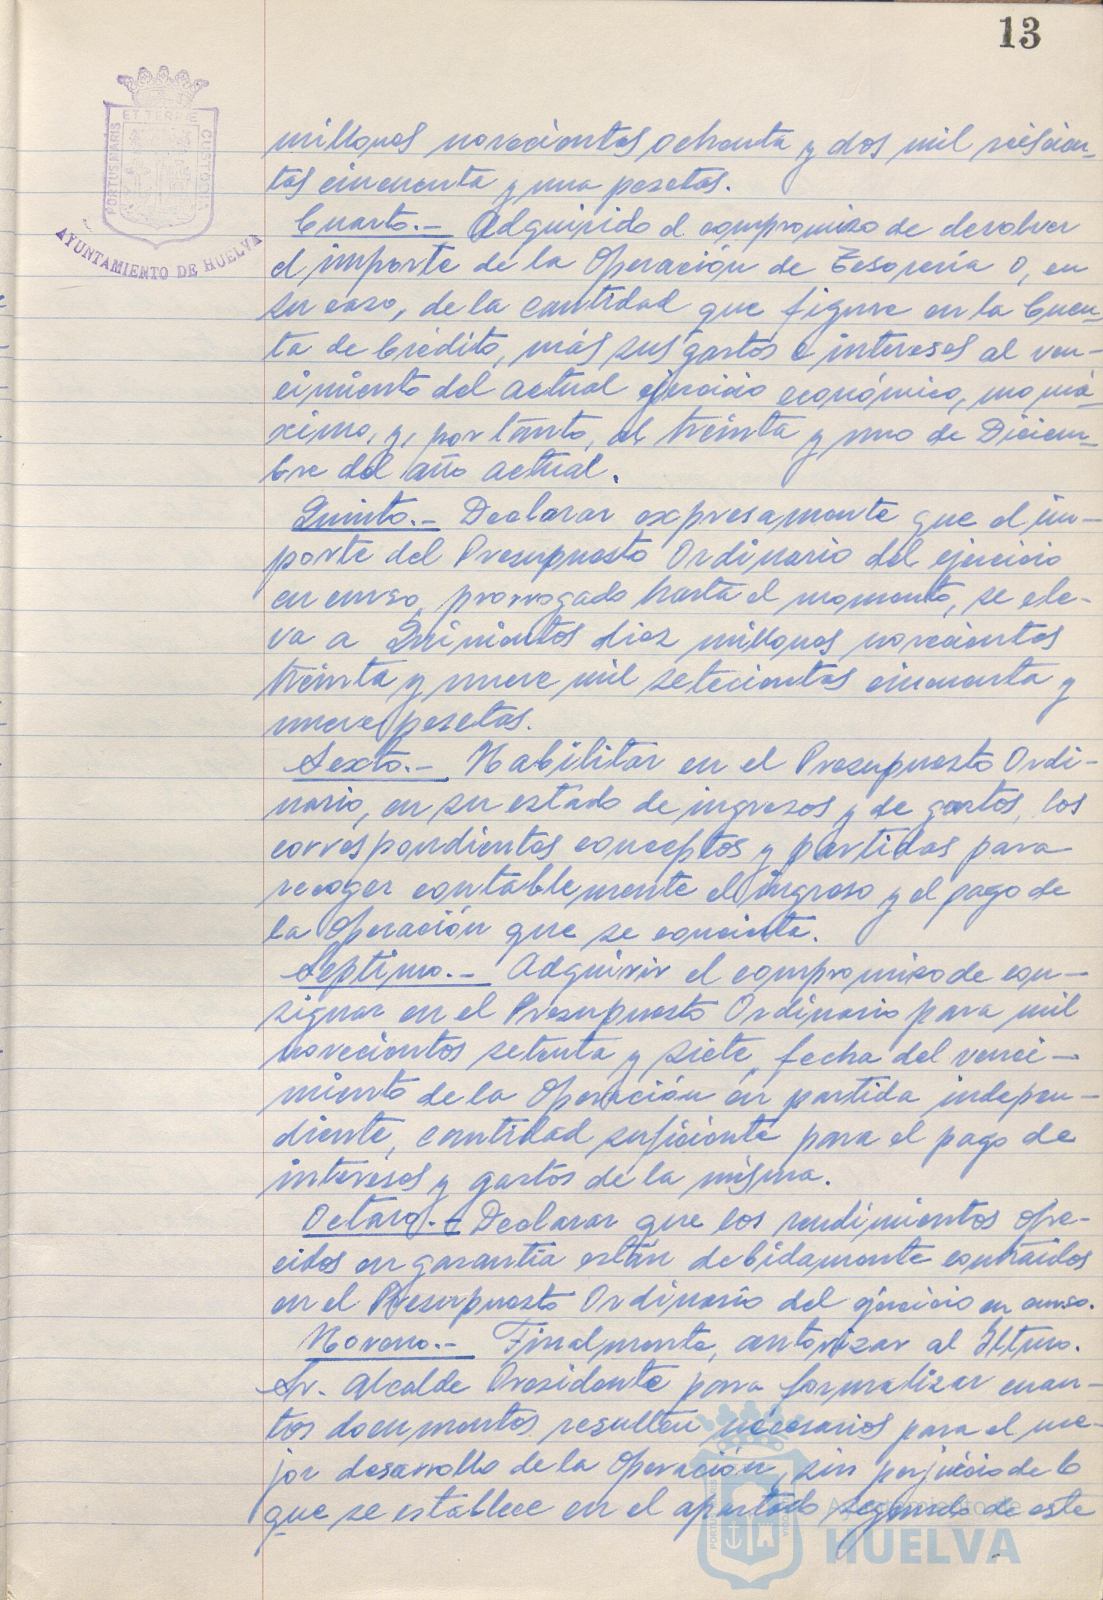 13
ET TERRÆ
PORTUS MARIS
CUSTODIA
AYUNTAMIENTO DE HUELVA
millones novecientos ochenta y dos mil seiscien-
tas cincuenta y una pesetas.
Cuarto.- Adquirido el compromiso de devolver
el importe de la Operación de Tesorería o, en
su caso, de la cantidad que figure en la Cuen-
ta de Crédito, más sus gastos e intereses al ven-
cimiento del actual ejercicio económico, como má-
ximo, y, por tanto, al treinta y uno de Diciem-
bre del año actual.
Quinto.- Declarar expresamente que el im-
porte del Presupuesto Ordinario del ejercicio
en curso, prorrogado hasta el momento, se ele-
va a Quinientos diez millones novecientos
treinta y nueve mil setecientas cincuenta y
nueve pesetas.
Sexto.- Habilitar en el Presupuesto Ordi-
nario, en su estado de ingresos y de gastos, los
correspondientes conceptos y partidas para
recoger contablemente el ingreso y el pago de
la Operación que se concierta.
Septimo.- Adquirir el compromiso de con-
signar en el Presupuesto Ordinario para mil
novecientos setenta y siete, fecha del venci-
miento de la Operación en partida indepen-
diente, cantidad suficiente para el pago de
intereses y gastos de la misma.
Octavo.- Declarar que los rendimientos ofre-
cidos en garantía están debidamente contraidos
en el Presupuesto Ordinario del ejercicio en curso.
Noveno.- Finalmente, autorizar al Iltmo.
Sr. Alcalde Presidente para formalizar cuan-
tos documentos resulten necesarios para el me-
jor desarrollo de la Operación, sin perjuicio de lo
que se establece en el apartado segundo de este
Ayuntamiento de
HUELVA